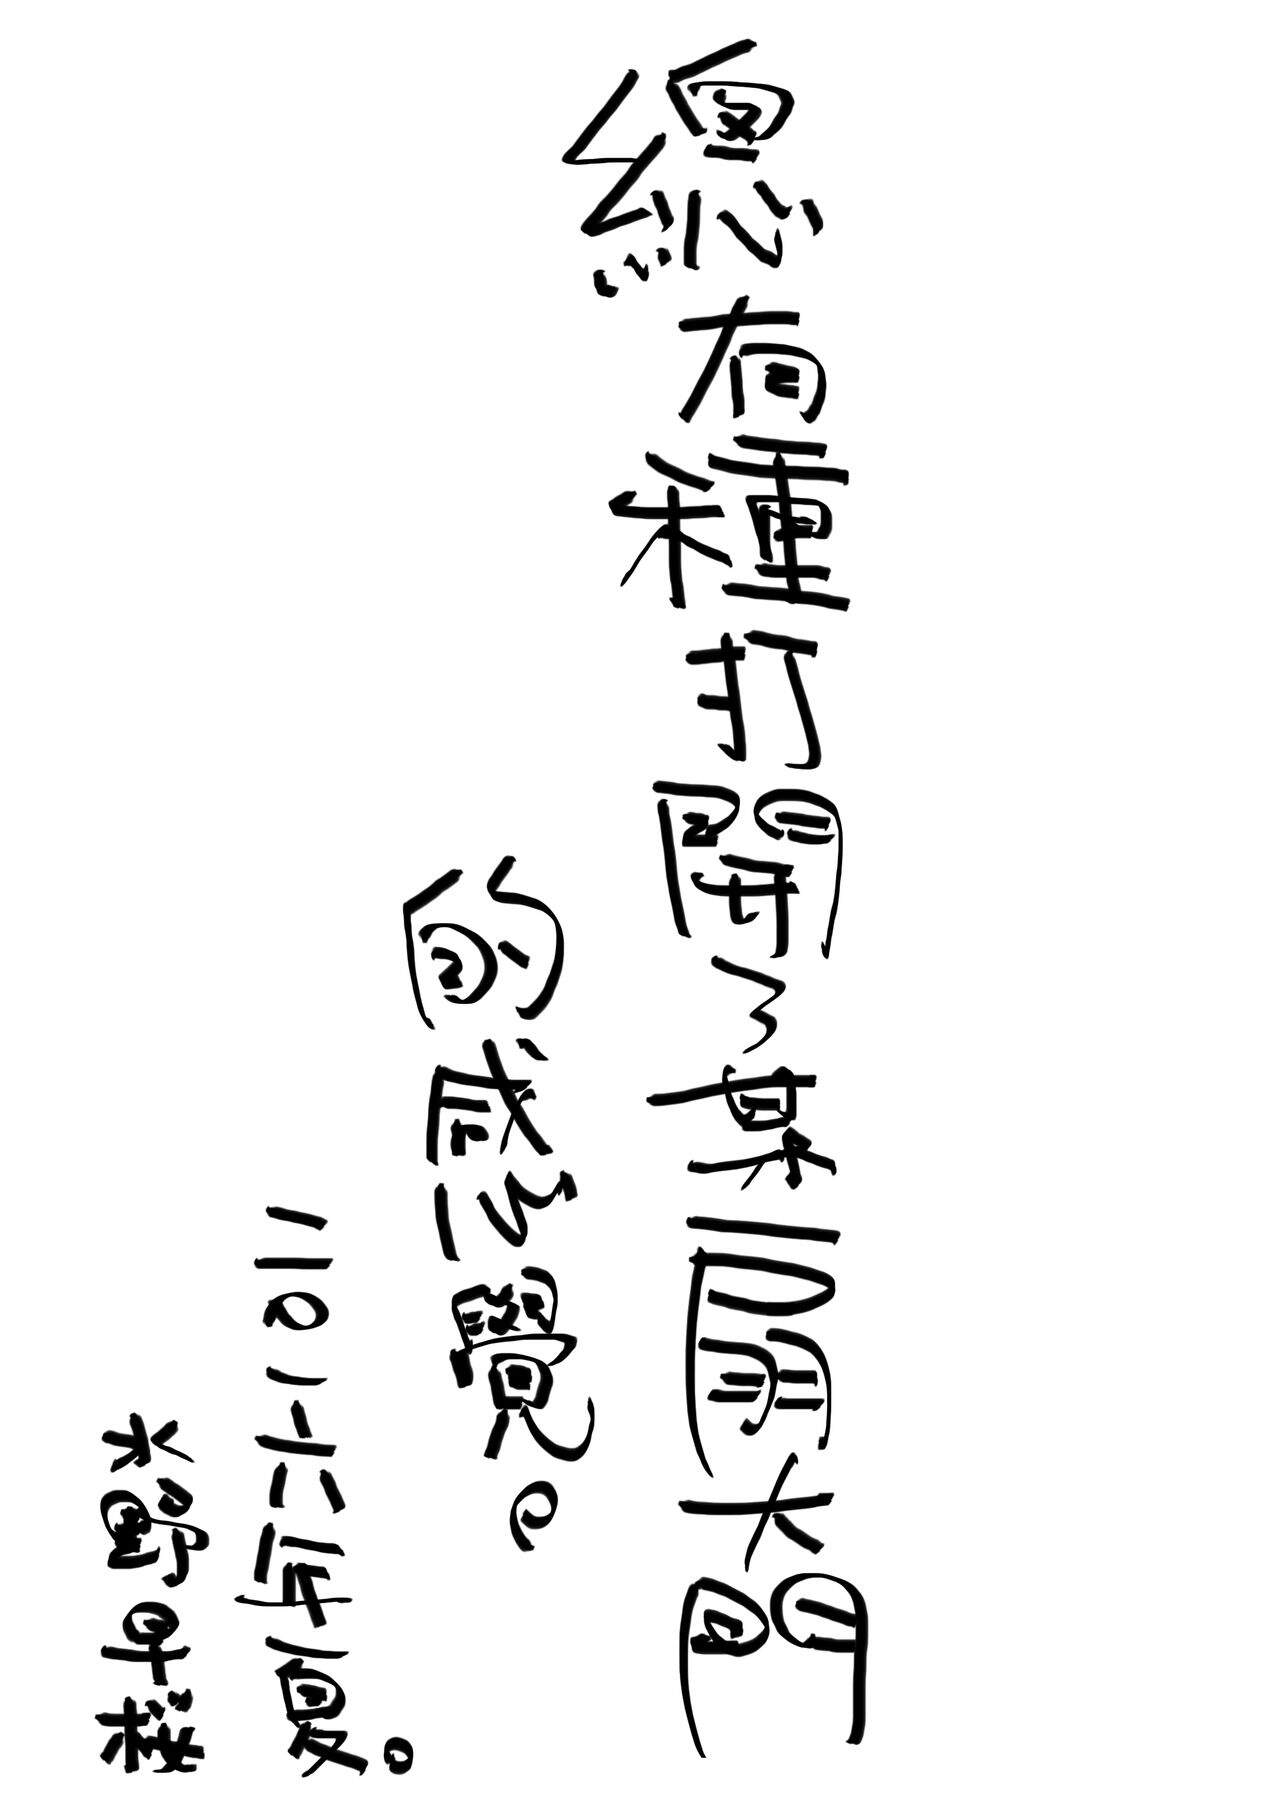 總有種打開了某扇大門
的感覺。
二〇一六年夏。
水野早桜